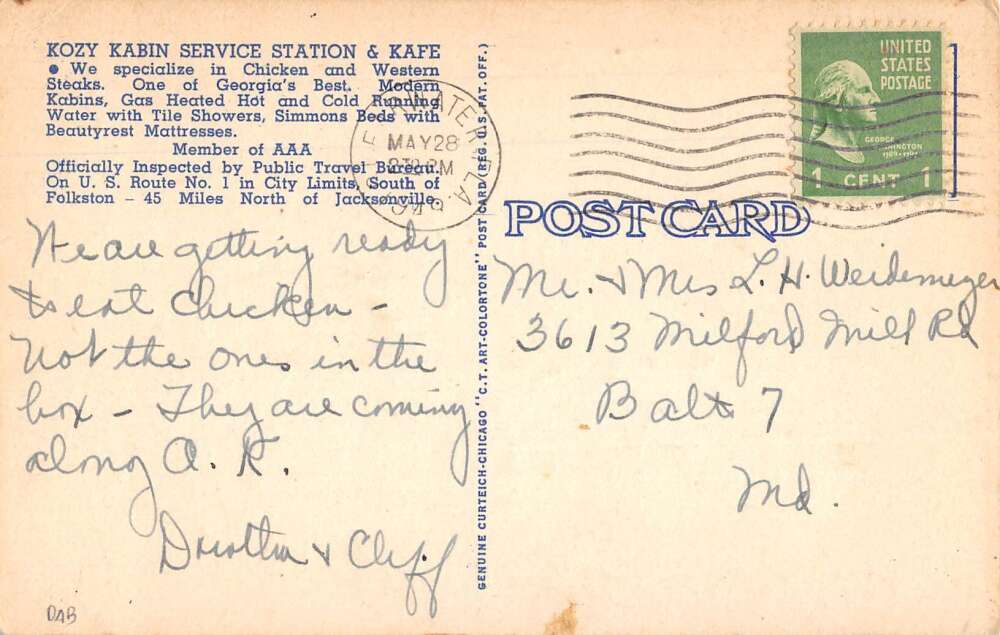 KOZY KABIN SERVICE STATION & KAFE
● We specialize in Chicken and Western
Steaks. One of Georgia's Best. Modern
Kabins, Gas Heated Hot and Cold Running
Water with Tile Showers, Simmons Beds with
Beautyrest Mattresses.
Member of AAA
Officially Inspected by Public Travel Bureau.
On U. S. Route No. 1 in City Limits, South of
Folkston - 45 Miles North of Jacksonville.
We are getting ready
to eat chicken -
Not the ones in the
box - They are coming
along O. K.
& Cliff
DAB
GENUINE CURTEICH-CHICAGO "C.T. ART-COLORTONE" POST CARD (REG. U.S. PAT. OFF.)
MAY 28
PM
FLA.
1949
UNITED
STATES
POSTAGE
GEORGE
WASHINGTON
1789-1797
1 CENT 1
POST CARD
Mr. & Mrs L. H. Weidemeyer
3613 Milford Mill Rd
Balto 7
Md.